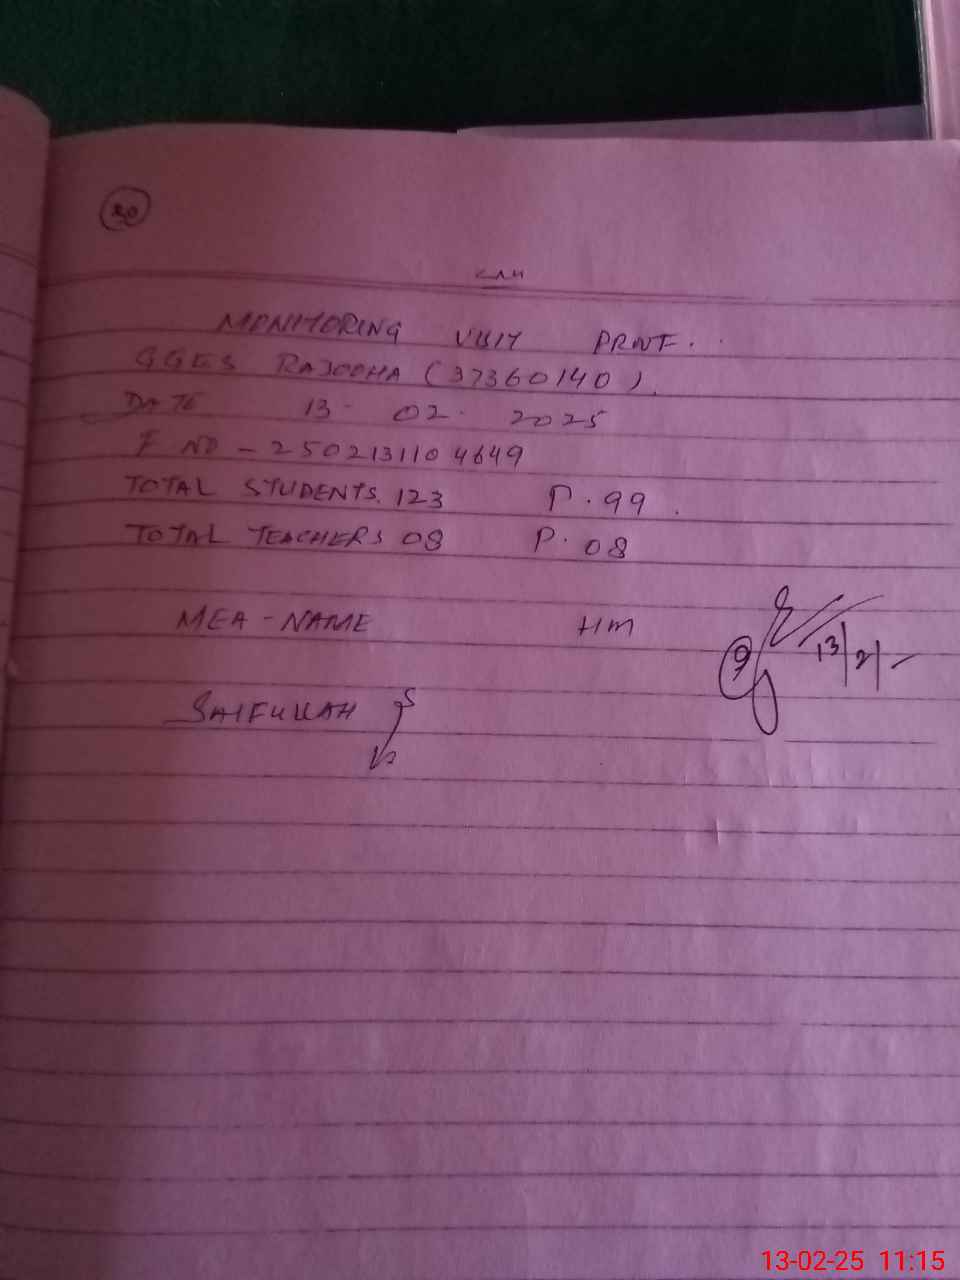 20
MONITORING VISIT PRNT.
GGES RAJODHA (37360140).
DATE 13-02-2025
F NO - 2502131104649
TOTAL STUDENTS. 123 P. 99.
TOTAL TEACHERS 08 P. 08
MEA-NAME HM
13/2/-
SAIFULLAH
13-02-25 11:15